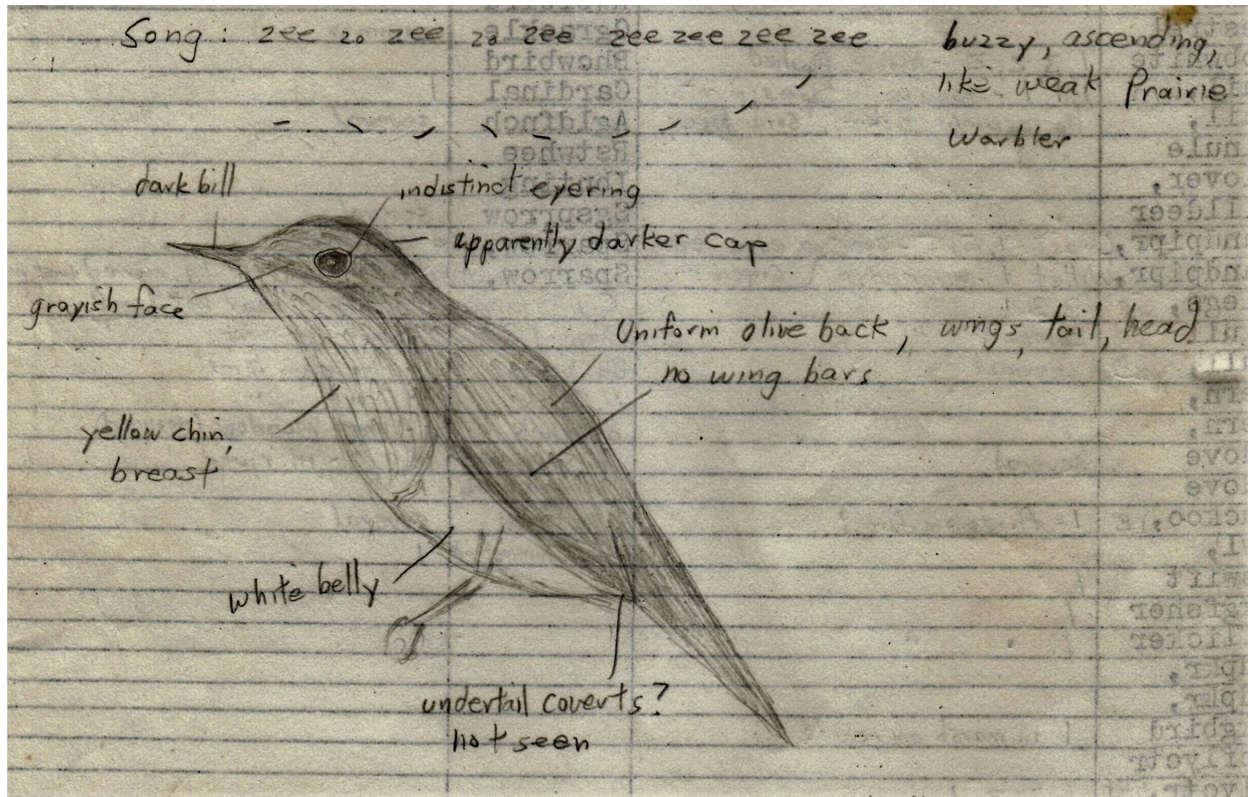 Song: zee zo zee zo zee zee zee zee zee
buzzy, ascending,
like weak Prairie
Warbler
dark bill
indistinct eyering
apparently darker cap
grayish face
Uniform olive back, wings, tail, head
no wing bars
yellow chin,
breast
white belly
undertail coverts?
not seen
Cardinal
Agldfnch
Rstwhee
Sparrow,